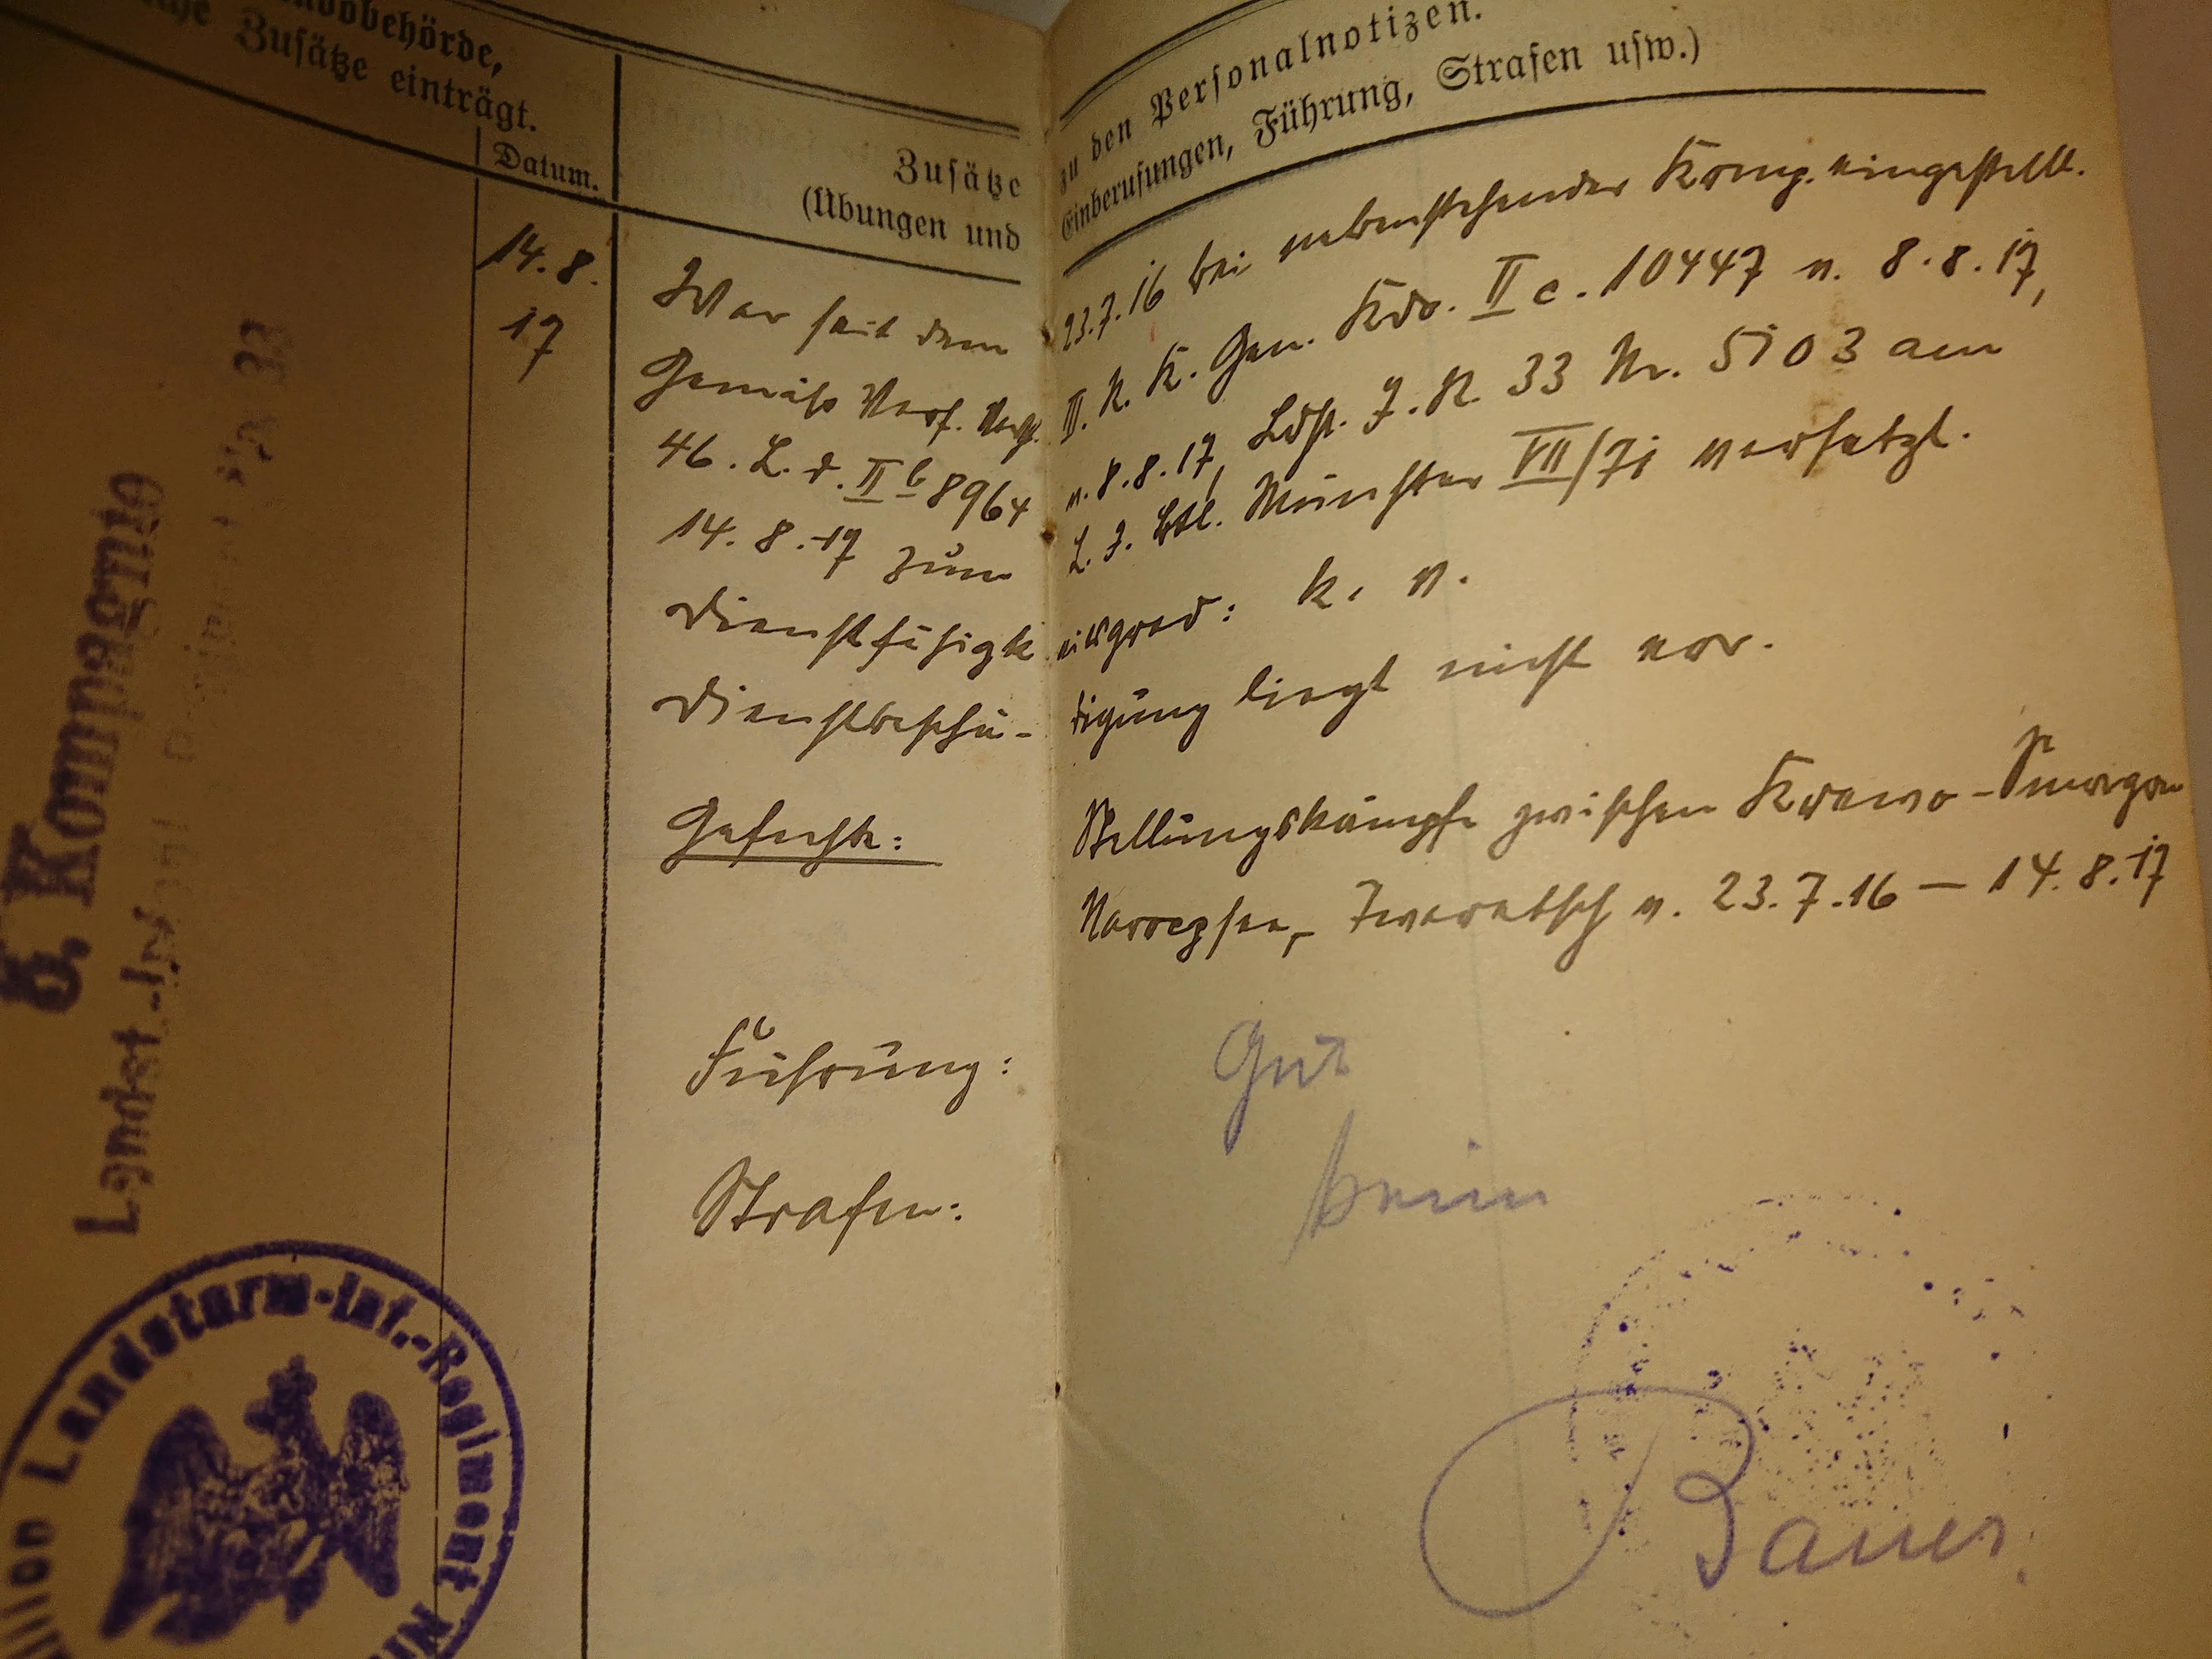 ndobehörde,
che Zusätze einträgt.
Datum.
Zusätze zu den Personalnotizen.
(Übungen und Einberufungen, Führung, Strafen usw.)
14.8.
17
War seit dem 23.7.16 bei nebenstehender Komp. eingestellt.
Gemäß Verf. III. R. K. Gen. Kdo. II c. 10447 v. 8.8.17,
46. L. d. II b 8964 v. 8.8.17, Ldst. J. R. 33 Nr. 5103 am
14.8.17 zum L. J. Btl. Münster VII/71 versetzt.
Dienstfähigkeitsgrad: k. v.
Dienstbeschädigung liegt nicht vor.
Gefechte: Stellungskämpfe zwischen Krewo-Smorgon
Naroczsee, v. 23.7.16 – 14.8.17
Führung: Gut
Strafen: keine
Bauer
6. Kompagnie
Landst.-Inf. 33
Landsturm-Inf.-Regiment